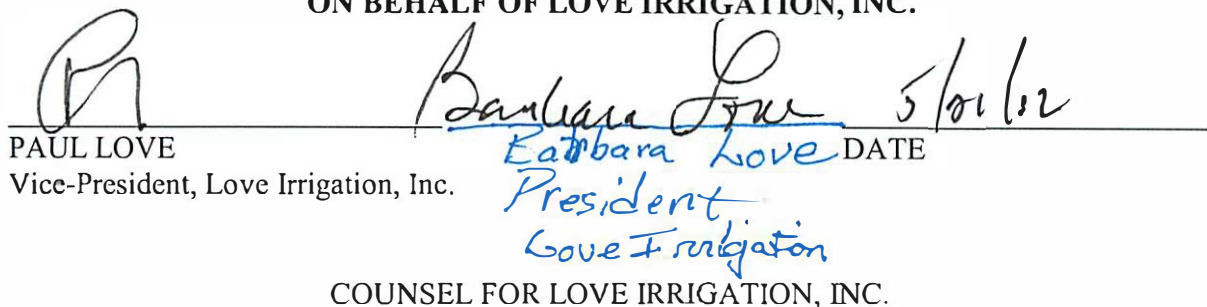 ON BEHALF OF LOVE IRRIGATION, INC.
Barbara Love 5/21/12
PAUL LOVE Barbara Love DATE
Vice-President, Love Irrigation, Inc. President
Love Irrigation
COUNSEL FOR LOVE IRRIGATION, INC.